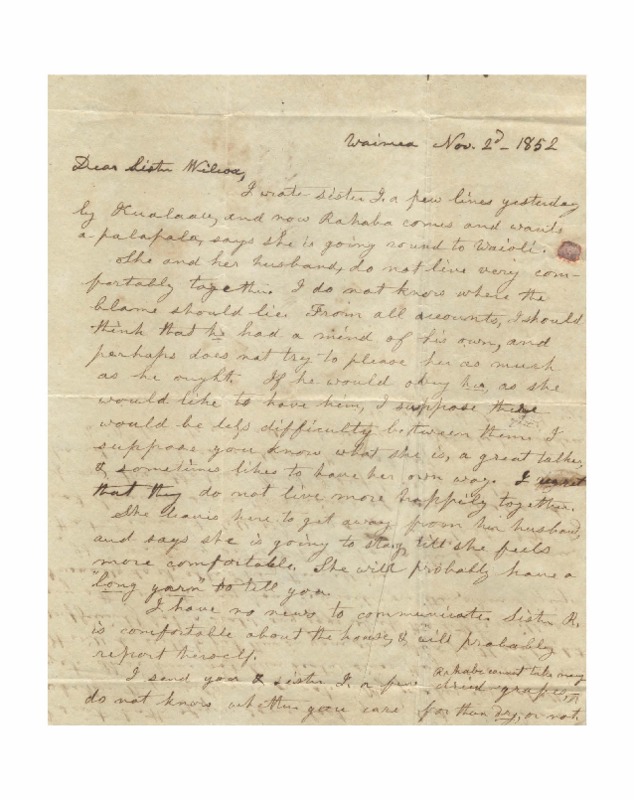 Waimea Nov. 2d - 1852
Dear Sister Wilcox,
I wrote sister J. a few lines yesterday
by Kualaau, and now Rahaba comes and wants
a palapala, says she is going round to Waioli.
She and her husband, do not live very com-
fortably together. I do not know where the
blame should lie. From all accounts, I should
think that he had a mind of his own, and
perhaps does not try to please her as much
as he ought. If he would obey her, as she
would like to have him, I suppose there
would be less difficulty between them. I
suppose you know what she is, a great talker,
& sometimes likes to have her own way. I regret
that they do not live more happily together.
She leaves here to get away from her husband,
and says she is going to stay till she feels
more comfortable. She will probably have a
"long yarn" to tell you.
I have no news to communicate. Sister R.
is comfortable about the house, & will probably
report herself.
Rahaba cannot take many
I send you & sister J. a few dried grapes, I
do not know whether you care for them dry, or not.